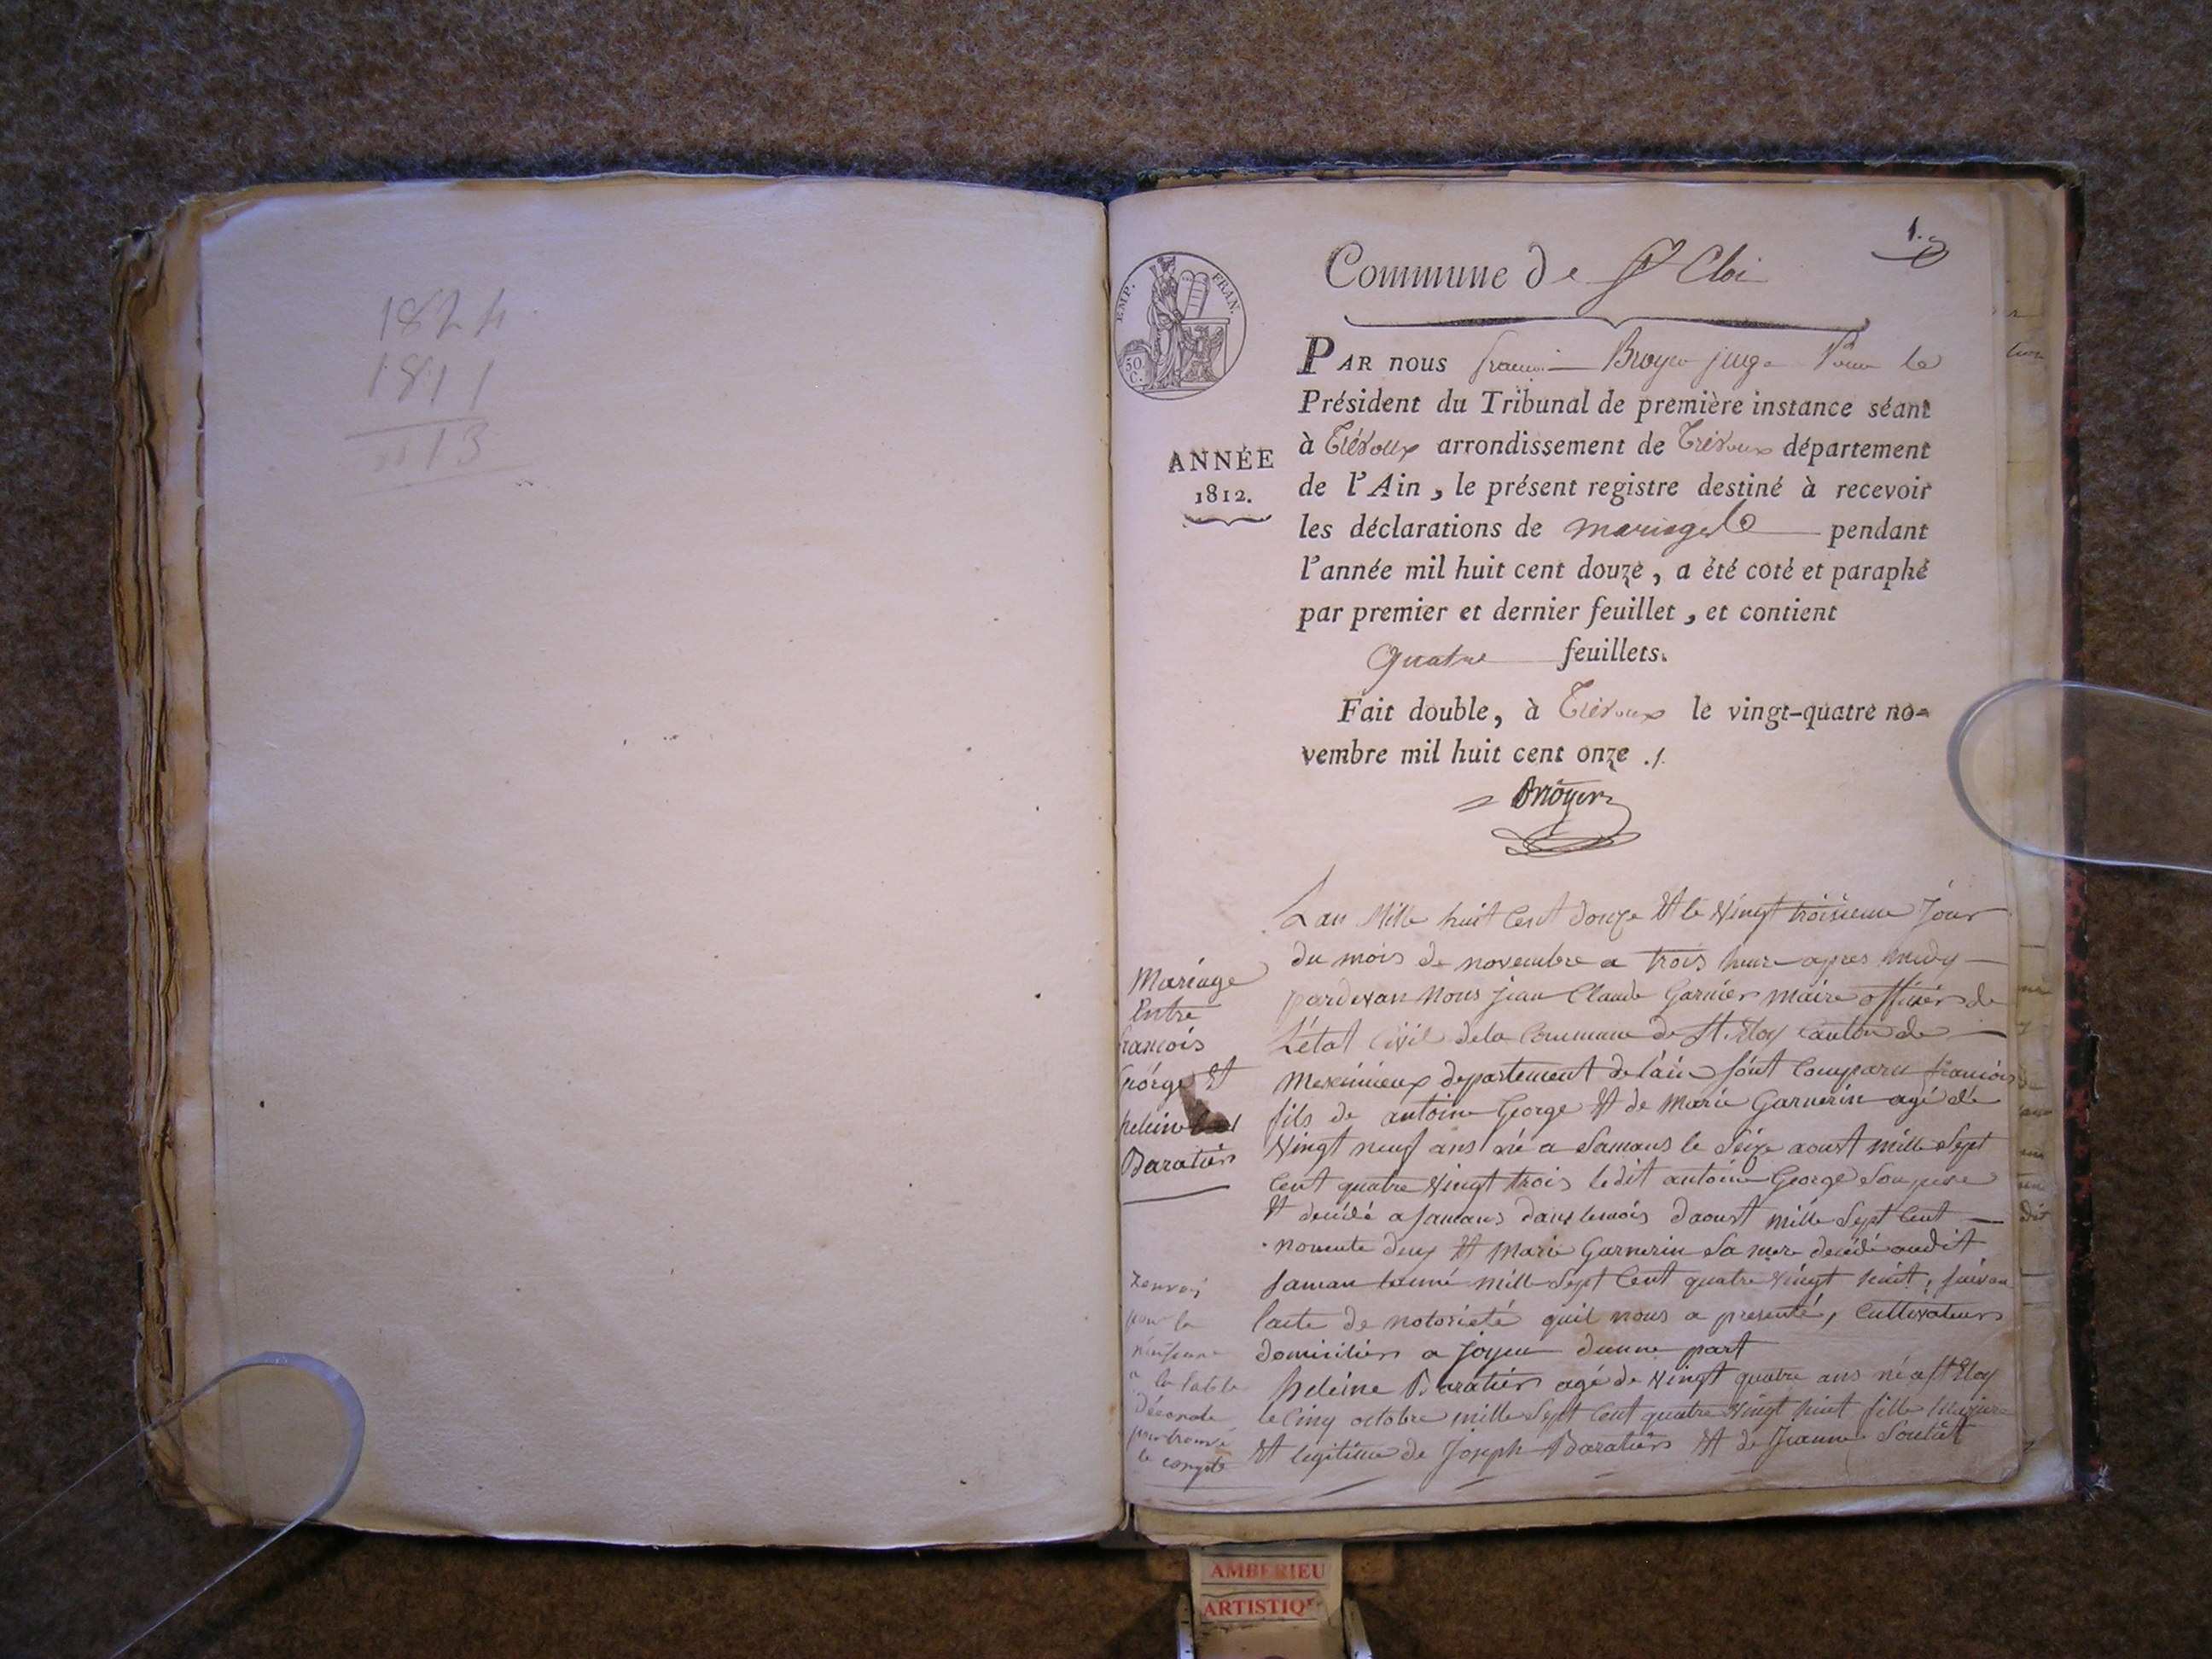 1824
1811
13
1.
Commune de St Eloi
EMP. FRAN.
50 C.
PAR nous françois Broyer juge Pour le
Président du Tribunal de première instance séant
à Trévoux arrondissement de Trévoux département
ANNÉE
1812.
de l'Ain, le présent registre destiné à recevoir
les déclarations de mariages pendant
l'année mil huit cent douze, a été coté et paraphé
par premier et dernier feuillet, et contient
quatre feuillets.
Fait double, à Trévoux le vingt-quatre no-
vembre mil huit cent onze ./.
Broyer
Lan Mille huit Cent douze Et le Vingt troisieme Jour
du mois de novembre a trois heure apres midy
pardevan Nous jean Claude Garnier maire officier de
L'état Civil dela Commune de St. Eloy Canton de
Meximieux departement delain sont Comparu francois
fils de antoine George Et de Marie Garnerin agé de
Vingt neuf ans né a Samans le Seize aoust mille Sept
Cent quatre Vingt trois ledit antoine George Son pere
Et decédé a Samans dans lemois daoust mille Sept Cent
nonente deux Et Marie Garnerin Sa mere decédé audit
Saman lanné mille Sept Cent quatre Vingt huit, suivan
lacte de notorieté quil nous a presenté, Cultivateur
domicilier a Joyeu dunne part
heleine Baratier agé de Vingt quatre ans né a St Eloy
le Cinq octobre mille Sept Cent quatre Vingt huit fille
Et legitime de Joseph Baratier Et de Jeanne
Mariage
Entre
francois
George Et
heleine
Baratier
renvoi
pour la
a la table
Décenale
pour trouvé
le compte
AMBERIEU
ARTISTIQ